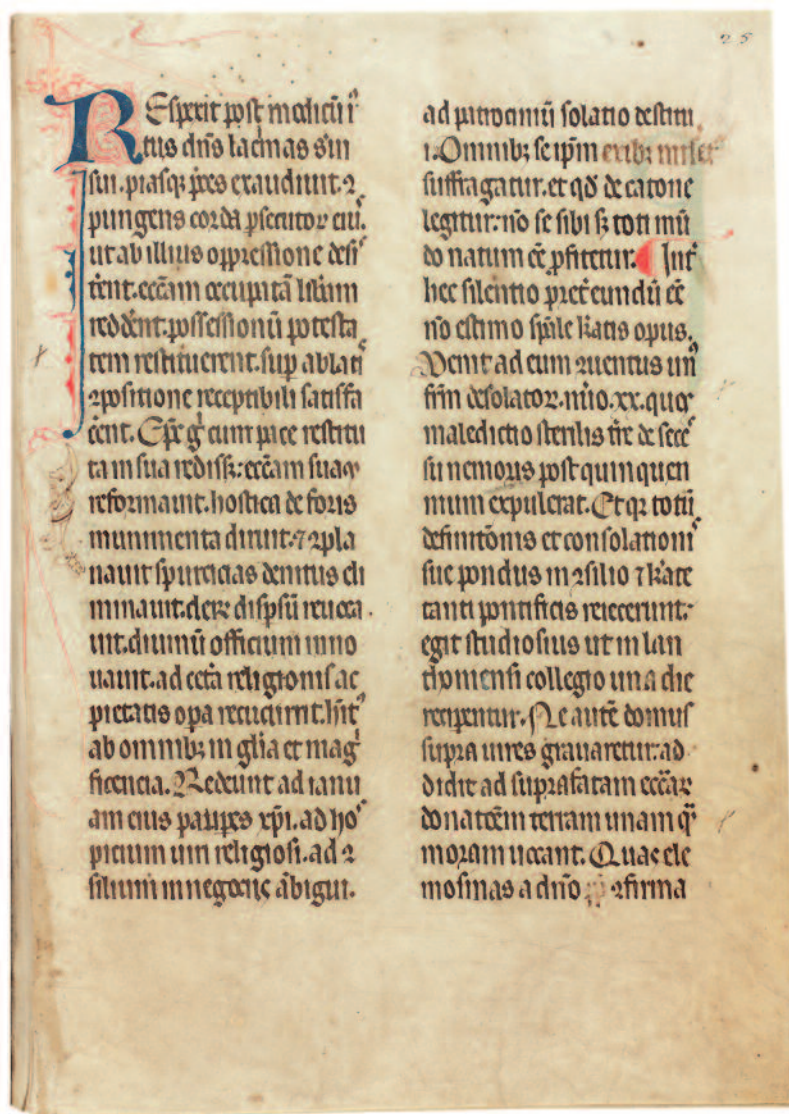 25
REspexit post modicū ī
tus dn̄s lacrimas s̄ui
sui. piasq; p̄ces exaudiuit. ⁊
pungens corda ꝑsecutoꝝ eiꝰ.
ut ab illius oppressione desi
terent. eccām occupatā libīum
reddēnt. possessionū potesta
tem restituerent. suꝑ ablatꝭ
ꝯpositione receptibili satiffa
cēnt. Ep̄c gͥ cum pace restitu
ta in sua rediss;. eccām suaꝫ
reformauit. hostica de foris
munimenta diruit. ⁊ ꝯpla
nauit spurcicias denitus eli
minauit. cleꝝ disp̄sū reuoca
uit. diuinū officium inno
uauit. ad cet̄a religionis ac
pietatis oꝑa recucurrit. hītꝰ
ab omnibꝫ in gl̄ia et mag
ficencia. Redeunt ad ianu
am eius pauꝑes xp̄i. ad ho
picium uiri religiosi. ad ꝯ
silium in negociꝭ ābigui.
ad patrocíniū solatio destitu
ti. Omnibꝫ se ip̄m
suffragatur. et qđ de catone
legitur. nō se sibi sꝫ toti mū
do natum eē ꝓfitetur. Int̄
hec silentio pret̄eundū eē
nō estimo sp̄ale k̄atis opus.
Venit ad eum ꝯuentus unꝰ
fr̄m desolatoꝝ. nūo. xx. quos
maledictio sterilis tr̄e de sece
su nemoris post quinquen
nium expulerat. Et qꝛ totū
definitōnis et consolationi
sue pondus in ꝯsilio ⁊ k̄ate
tanti pontificis reiecerunt.
egit studiosius ut in lan
domensi collegio una die
reciperentur. Ne autē domus
supra uires grauaretur. ad
didit ad suprafatam eccāꝫ
donatōem terram unam qͣ
moram uocant. Quas ele
mosinas a dn̄o ꝯfirma